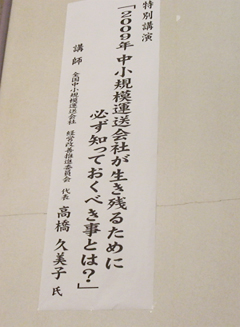 特別講演
「2009年 中小規模運送会社が生き残るために
必ず知っておくべき事とは?」
講師 全国中小規模運送会社 経営改善推進委員会 代表 高橋 久美子 氏